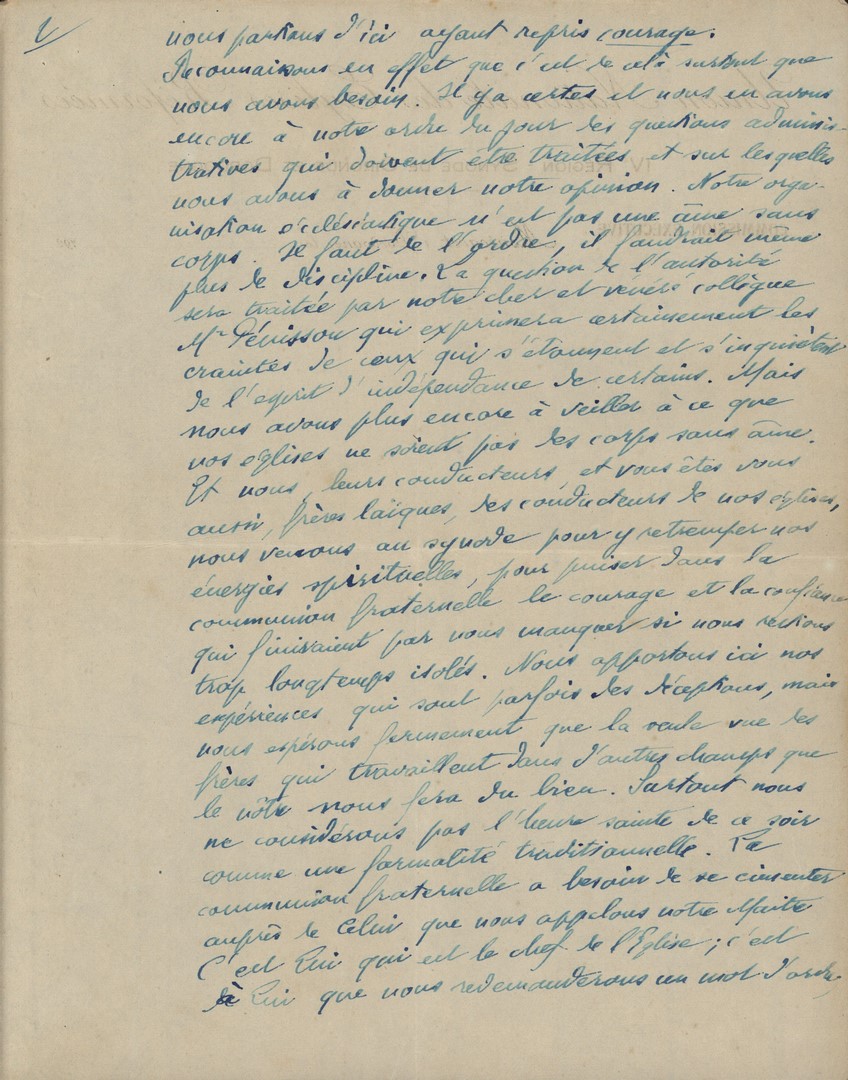 2/
nous partions d'ici ayant repris courage.
Reconnaissons en effet que c'est de cela surtout que
nous avons besoin. Il y a certes et nous en avons
encore à notre ordre du jour des questions adminis-
tratives qui doivent être traitées et sur lesquelles
nous avons à donner notre opinion. Notre orga-
nisation ecclésiastique n'est pas une âme sans
corps. Il faut de l'ordre, il faudrait même
plus de discipline. La question de l'autorité
sera traitée par notre cher et vénéré collègue
Mr Pénisson qui exprimera certainement les
craintes de ceux qui s'étonnent et s'inquiètent
de l'esprit d'indépendance de certains. Mais
nous avons plus encore à veiller à ce que
nos églises ne soient pas des corps sans âme.
Et nous, leurs conducteurs, et vous êtes vous
aussi, frères laïques, des conducteurs de nos églises,
nous venons au synode pour y retremper nos
énergies spirituelles, pour puiser dans la
communion fraternelle le courage et la confiance
qui finiraient par nous manquer si nous restions
trop longtemps isolés. Nous apportons ici nos
expériences qui sont parfois des déceptions, mais
nous espérons fermement que la seule vue des
frères qui travaillent dans d'autres champs que
le nôtre nous fera du bien. Surtout nous
ne considérons pas l'heure sainte de ce soir
comme une formalité traditionnelle. La
communion fraternelle a besoin de se cimenter
auprès de Celui que nous appelons notre Maître
C'est Lui qui est le chef de l'Eglise ; c'est
à Lui que nous redemanderons un mot d'ordre,